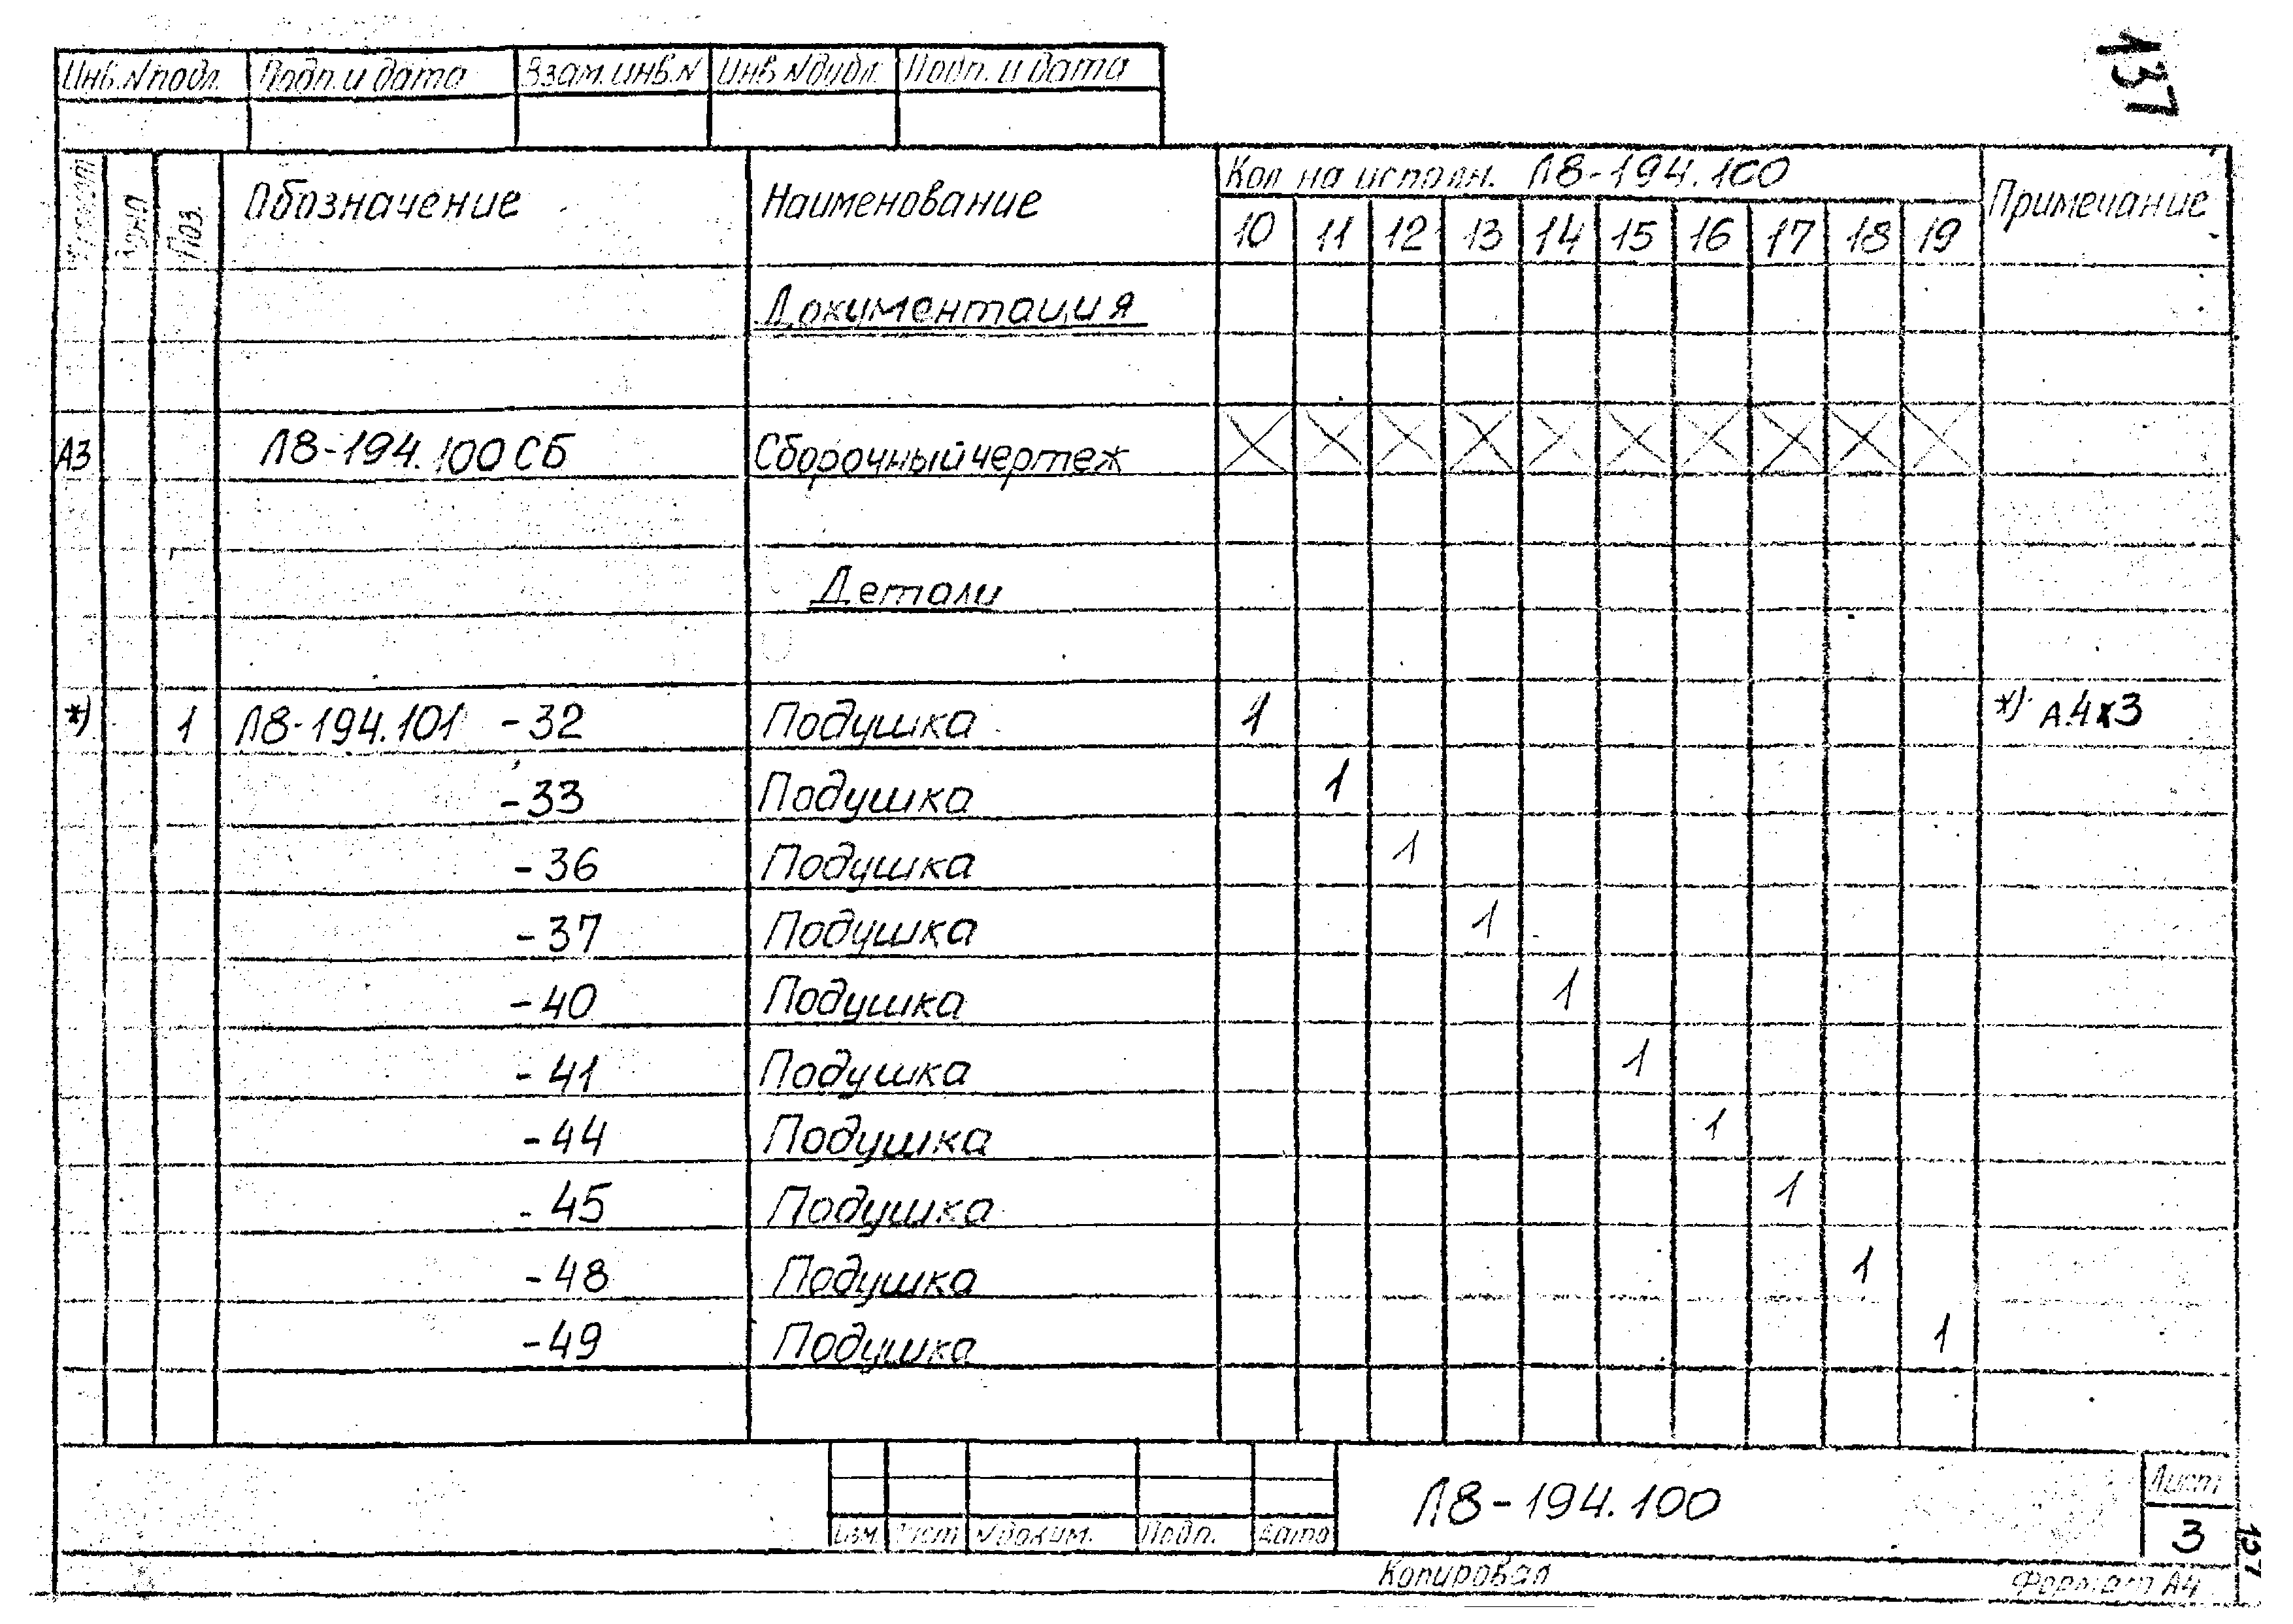 137
Инв. N подл. Подп. и дата Взам. инв. N Инв. N дубл. Подп. и дата
Формат Зона Поз. Обозначение Наименование Кол на исполн. Л8-194.100 Примечание
10 11 12 13 14 15 16 17 18 19
Документация
А3 Л8-194.100 СБ Сборочный чертеж X X X X X X X X X X
Детали
*) 1 Л8-194.101 -32 Подушка 1 *) А4х3
-33 Подушка 1
-36 Подушка 1
-37 Подушка 1
-40 Подушка 1
-41 Подушка 1
-44 Подушка 1
-45 Подушка 1
-48 Подушка 1
-49 Подушка 1
Л8-194.100
Лист
3
Изм Лист N докум. Подп. Дата
Копировал
Формат А4